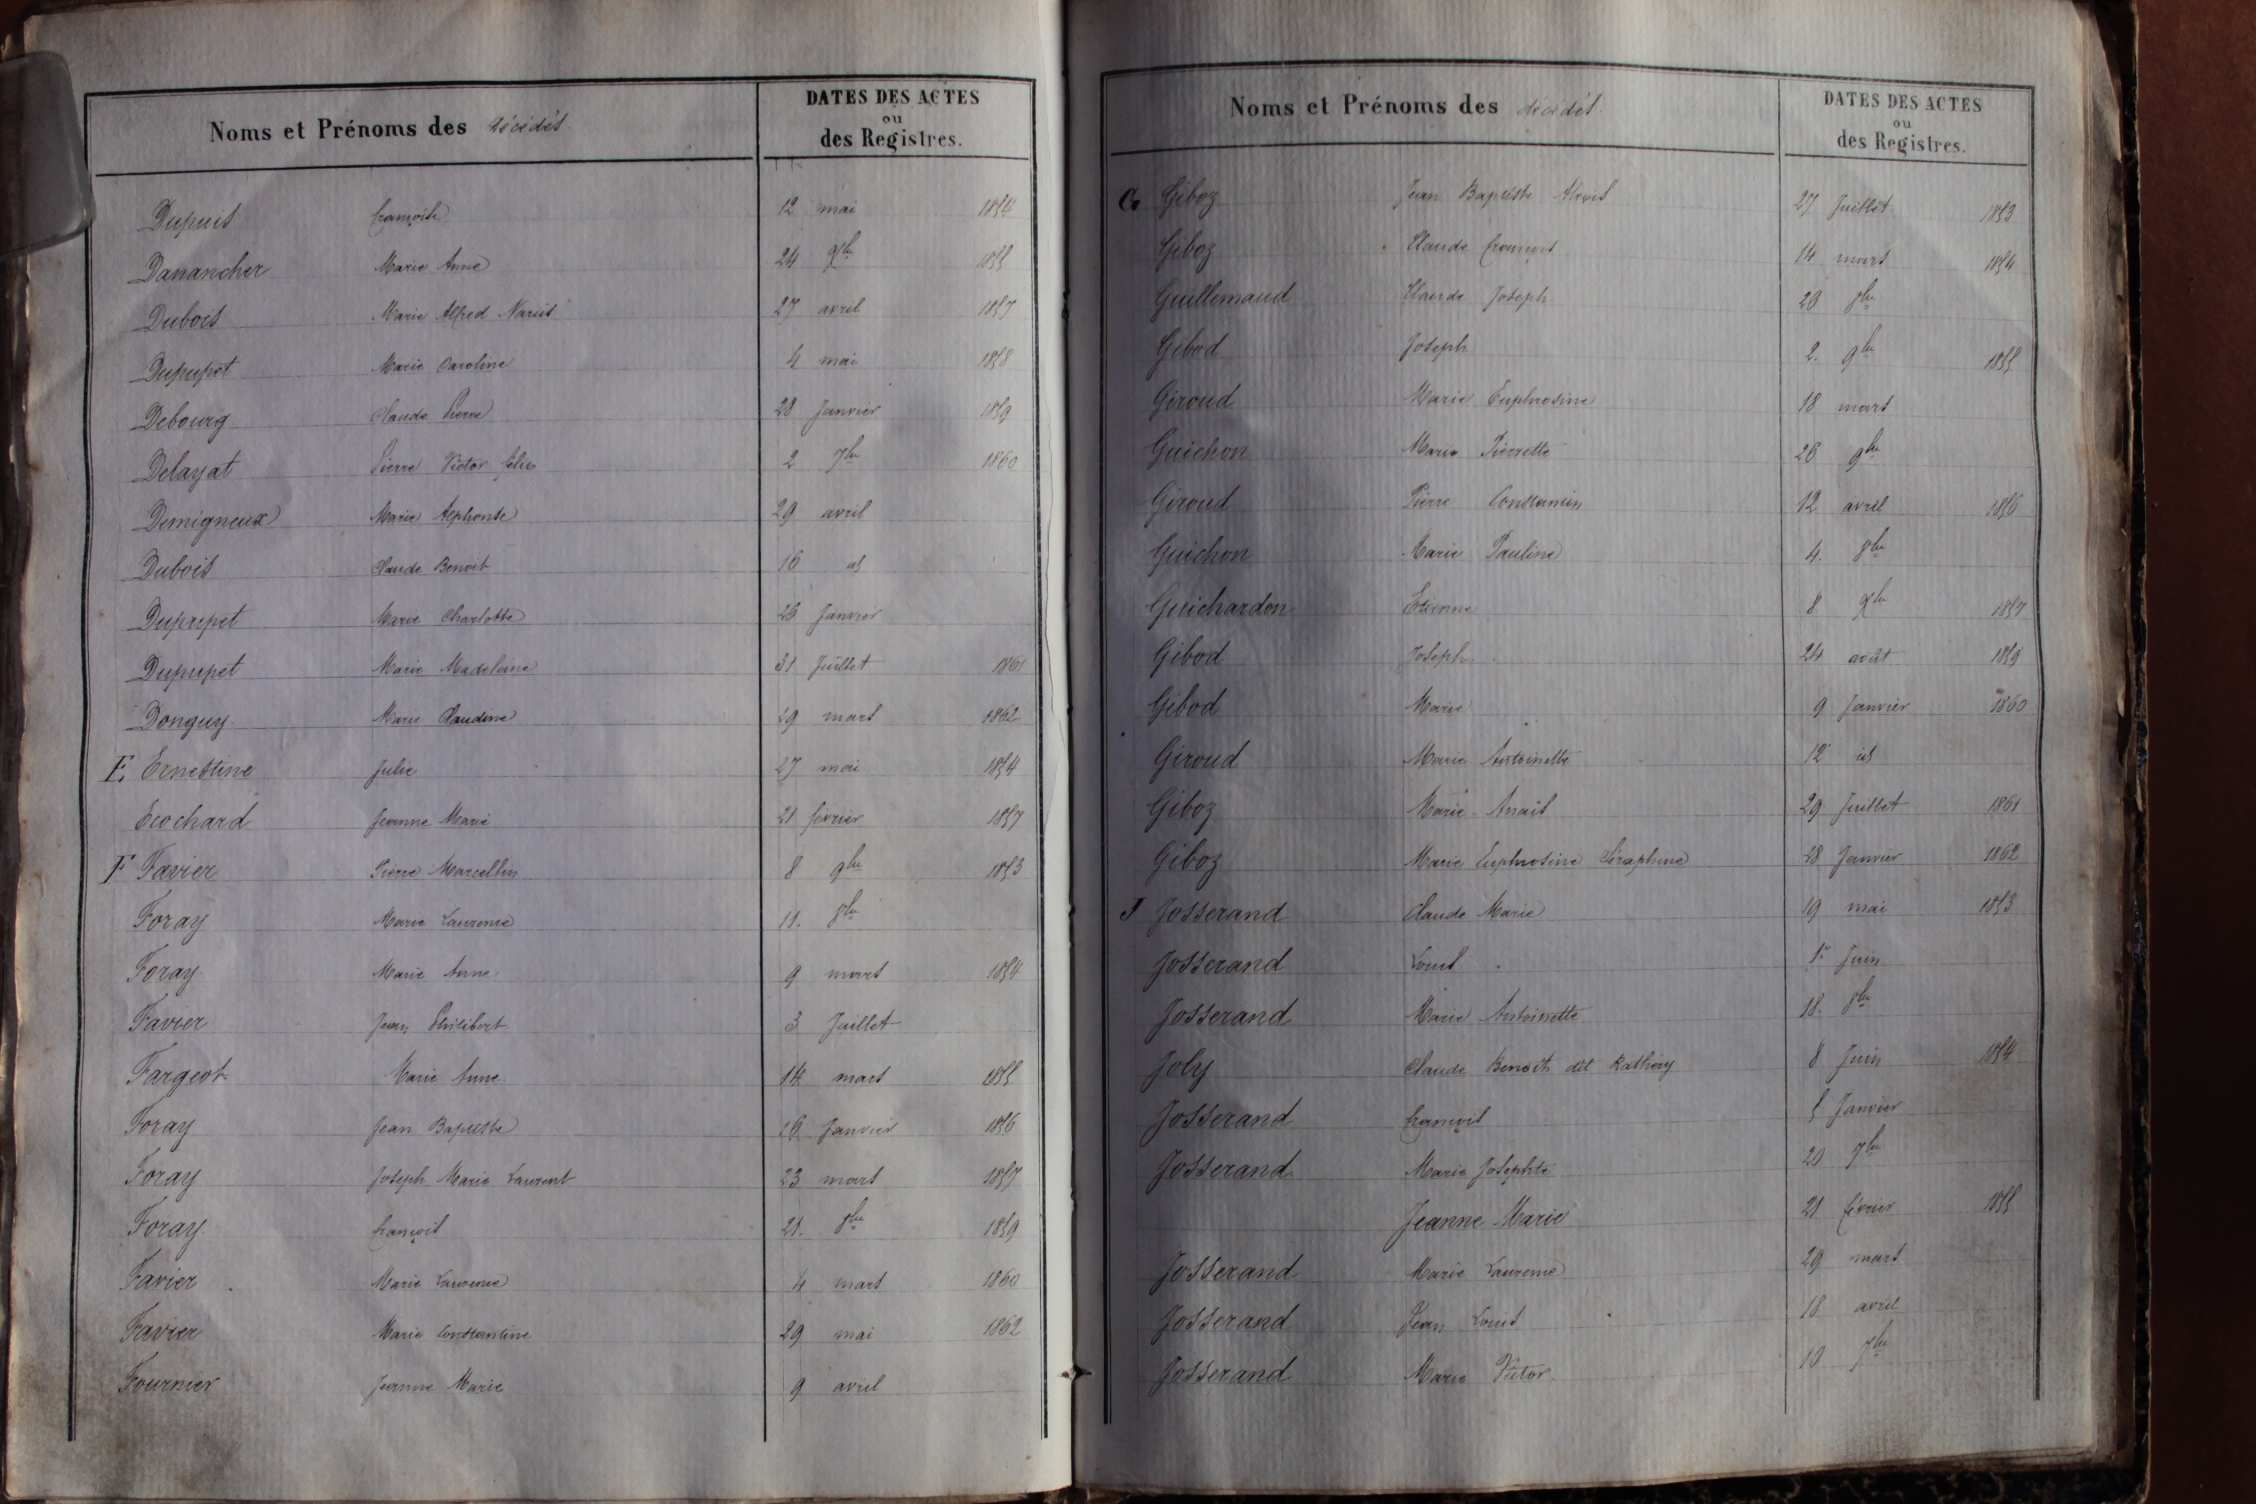 Noms et Prénoms des décédés
DATES DES ACTES
ou
des Registres.
Dupuis françoise 12 mai 1854
Danancher Marie Anne 24 xbre 1855
Dubois Marie Alfred 27 avril 1857
Dupupet Marie Caroline 4 mai 1858
Debourg Claude Pierre 28 Janvier 1859
Delayat Pierre Victor félix 2 7bre 1860
Demigneux Marie Alphonse 29 avril
Dubois Claude Benoit 16 id
Dupupet Marie Charlotte 26 Janvier
Dupupet Marie Madeleine 31 Juillet 1861
Donguy Marie Claudine 29 mars 1862
E Ernestine Julie 27 mai 1854
Ecochard Jeanne Marie 21 février 1857
F Favier Pierre Marcellin 8 9bre 1853
Foray Marie Laurence 11. 8bre
Foray Marie Anne 9 mars 1854
Favier Jean Philibert 3 Juillet
Fargeot Marie Anne 14 mars 1855
Foray Jean Baptiste 26 Janvier 1856
Foray Joseph Marie Laurent 23 mars 1857
Foray françois 21. 8bre 1859
Favier Marie Laurence 4 mars 1860
Favier Marie Constantine 29 mai 1862
Fournier Jeanne Marie 9 avril
Noms et Prénoms des décédés.
DATES DES ACTES
ou
des Registres.
G Giboz Jean Baptiste Alexis 27 Juillet 1853
Giboz Claude françois 14 mars 1854
Guillemaud Claude Joseph 28 8bre
Gibod Joseph 2. 9bre 1855
Giroud Marie Euphrosine 18 mars
Guichon Marie Pierrette 28 9bre
Giroud Pierre Constantin 12 avril 1856
Guichon Marie Pauline 4. 8bre
Guichardon Etienne 8 xbre 1857
Gibod Joseph 24 août 1859
Gibod Marie 9 Janvier 1860
Giroud Marie Antoinette 12 id
Giboz Marie Anaïs 29 Juillet 1861
Giboz Marie Euphrosine Séraphine 28 Janvier 1862
J Josserand Claude Marie 19 mai 1853
Josserand Louis 1er Juin
Josserand Marie Antoinette 18. 8bre
Joly Claude Benoit dit 8 Juin 1854
Josserand françois 5 Janvier
Josserand Marie Josephte 20 7bre
Jeanne Marie 21 février 1855
Josserand Marie Laurence 29 mars
Josserand Jean Louis 18 avril
Josserand Marie Victor 10 7bre